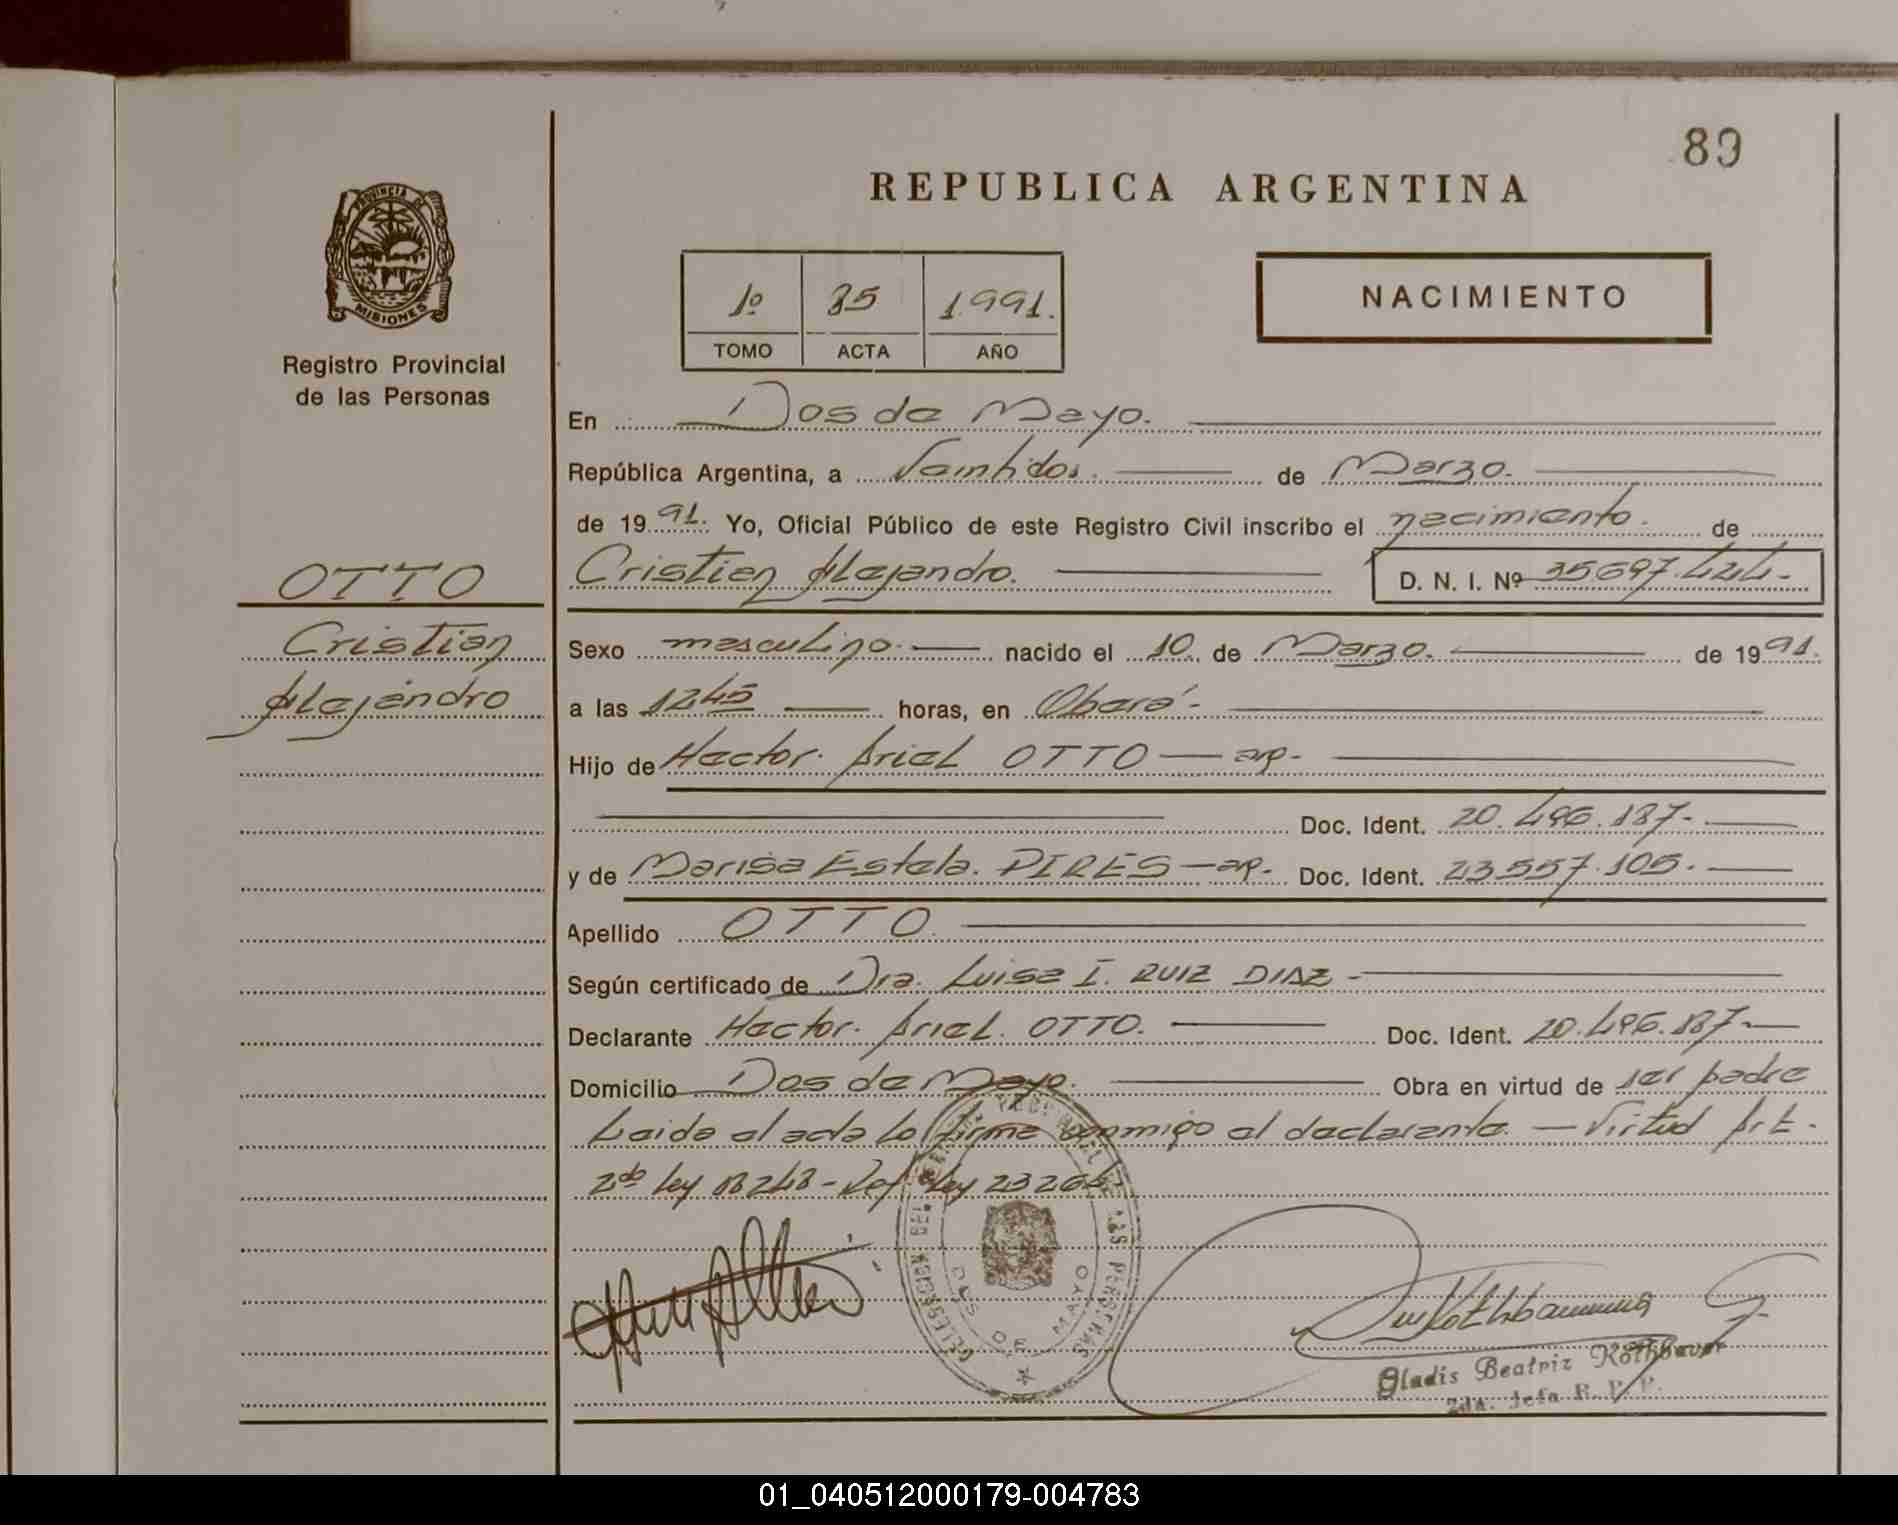 89
REPUBLICA ARGENTINA
PROVINCIA DE
MISIONES
Registro Provincial
de las Personas
1º 35 1.991.
TOMO ACTA AÑO
NACIMIENTO
En Dos de Mayo.
República Argentina, a Veintidos. de Marzo.
de 1991. Yo, Oficial Público de este Registro Civil inscribo el nacimiento. de
OTTO
Cristian Alejandro. D. N. I. Nº 35697.424.
Cristian
Alejandro
Sexo masculino. nacido el 10. de Marzo. de 1991.
a las 1245 horas, en Oberá-
Hijo de Hector. Ariel OTTO — ap-
Doc. Ident. 20.496.187-
y de Marisa Estela. PIRES — ap- Doc. Ident. 23557.105.
Apellido OTTO
Según certificado de Dra. Luisa I. RUIZ DIAZ -
Declarante Hector. Ariel. OTTO. Doc. Ident. 20.496.187-
Domicilio Dos de Mayo. Obra en virtud de ser padre
Leida el acta la firma conmigo el declarante. — Virtud Art.
2do Ley 18248 - Ley 23264
DOS DE MAYO
Gladis Beatriz Rothbauer
2da. Jefa R. P. P.
01_040512000179-004783